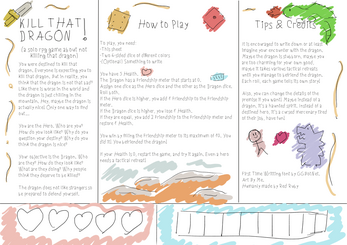 KILL THAT
DRAGON!
(a solo rpg game about not
killing that dragon)
You were destined to kill that
dragon. Everyone is expecting you to
kill that dragon. But in reality, you
think that the dragon is not that bad?
Like there is worse in the world and
the dragon is just chilling in the
mountain. Hey, maybe the dragon is
actually nice! Only one way to find
out...
You are the Hero. Who are you?
How do you look like? Why do you
question your destiny? Why do
think the dragon is nice?
Your objective is the Dragon. Who
are they? How do they look like?
What are they doing? Why do people
think they deserve to be killed?
The dragon does not like strangers so
be prepared to defend yourself.
How to Play
To play, you need:
-This sheet
-Two 6-sided dice of different colors.
-(Optional) Something to write
You have 5 Health.
The Dragon has a Friendship meter that starts at 0.
Assign one dice as the Hero dice and the other as the Dragon dice.
Roll both.
If the Hero dice is higher, you add 1 Friendship to the Friendship
meter.
If the Dragon dice is higher, you lose 1 Health.
If they are equal, you add 2 Friendship to the Friendship meter and
restore 1 Health.
You win by filling the Friendship meter to its maximum of 10. You
did it! You befriended the dragon!
If your Health is 0, restart the game and try again. Even a hero
needs a tactical retreat.
Tips & Credits
It is encouraged to write down or at least
imagine your encounter with the dragon.
Maybe the dragon is stubborn. Maybe you
are too charming for your own good.
Maybe it takes various tactical retreats
until you manage to befriend the dragon.
Each roll, each game tells its own story!
Also, you can change the details of the
prompt if you want. Maybe instead of a
dragon, it's a haunted spirit. Instead of a
destined hero, it's a cursed mercenary tired
of their job. Have fun!